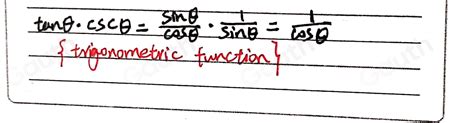 tanθ · cscθ = sinθ/cosθ · 1/sinθ = 1/cosθ
{ trigonometric function }